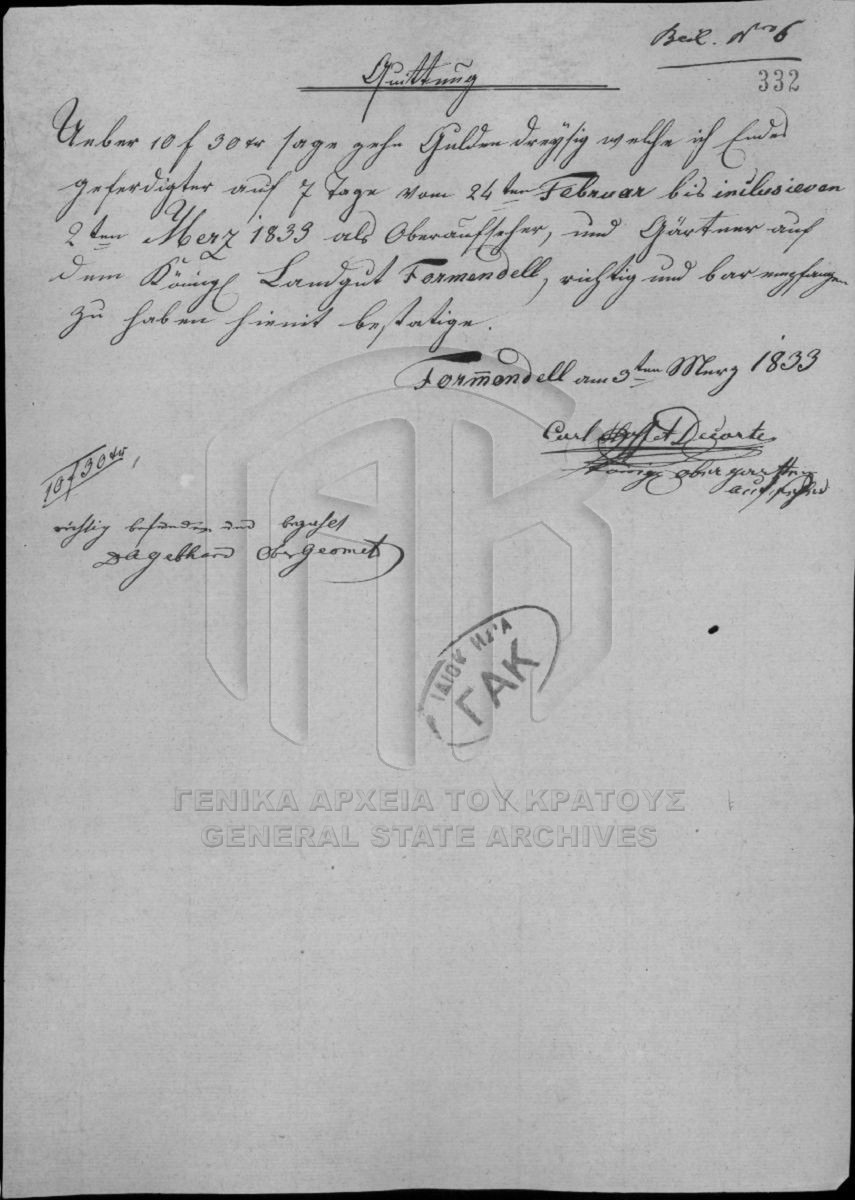 Beil. Nro 6
332
Quittung
Ueber 10 f 30 xr sage zehn Gulden dreysig welche ich Endes
geferdigter auf 7 Tage vom 24ten Februar bis inclusieven
2ten Merz 1833 als Oberaufseher, und Gärtner auf
dem Königl Landgut Formendell, richtig und bar empfangen
zu haben hiemit bestatige.
Formendell am 3ten Merz 1833
Carl Decorte
König obergartten
aufseher
10 f 30 xr
richtig befunden und bezahlt
Obergeomet
ΓΑΚ
ΓΕΝΙΚΑ ΑΡΧΕΙΑ ΤΟΥ ΚΡΑΤΟΥΣ
GENERAL STATE ARCHIVES